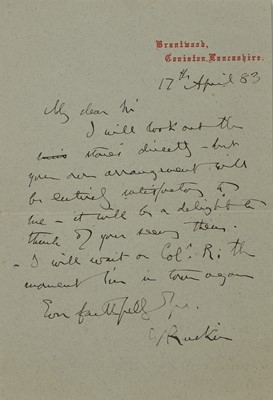 Brantwood,
Coniston, Lancashire.
17th April 83
My dear Sir
I will look out the
stones directly - but
your own arrangement will
be entirely satisfactory to
me - it will be a delight to
think of your seeing them.
- I will wait on Col. R; the
moment I'm in town again
Ever faithfully Yrs.
J Ruskin